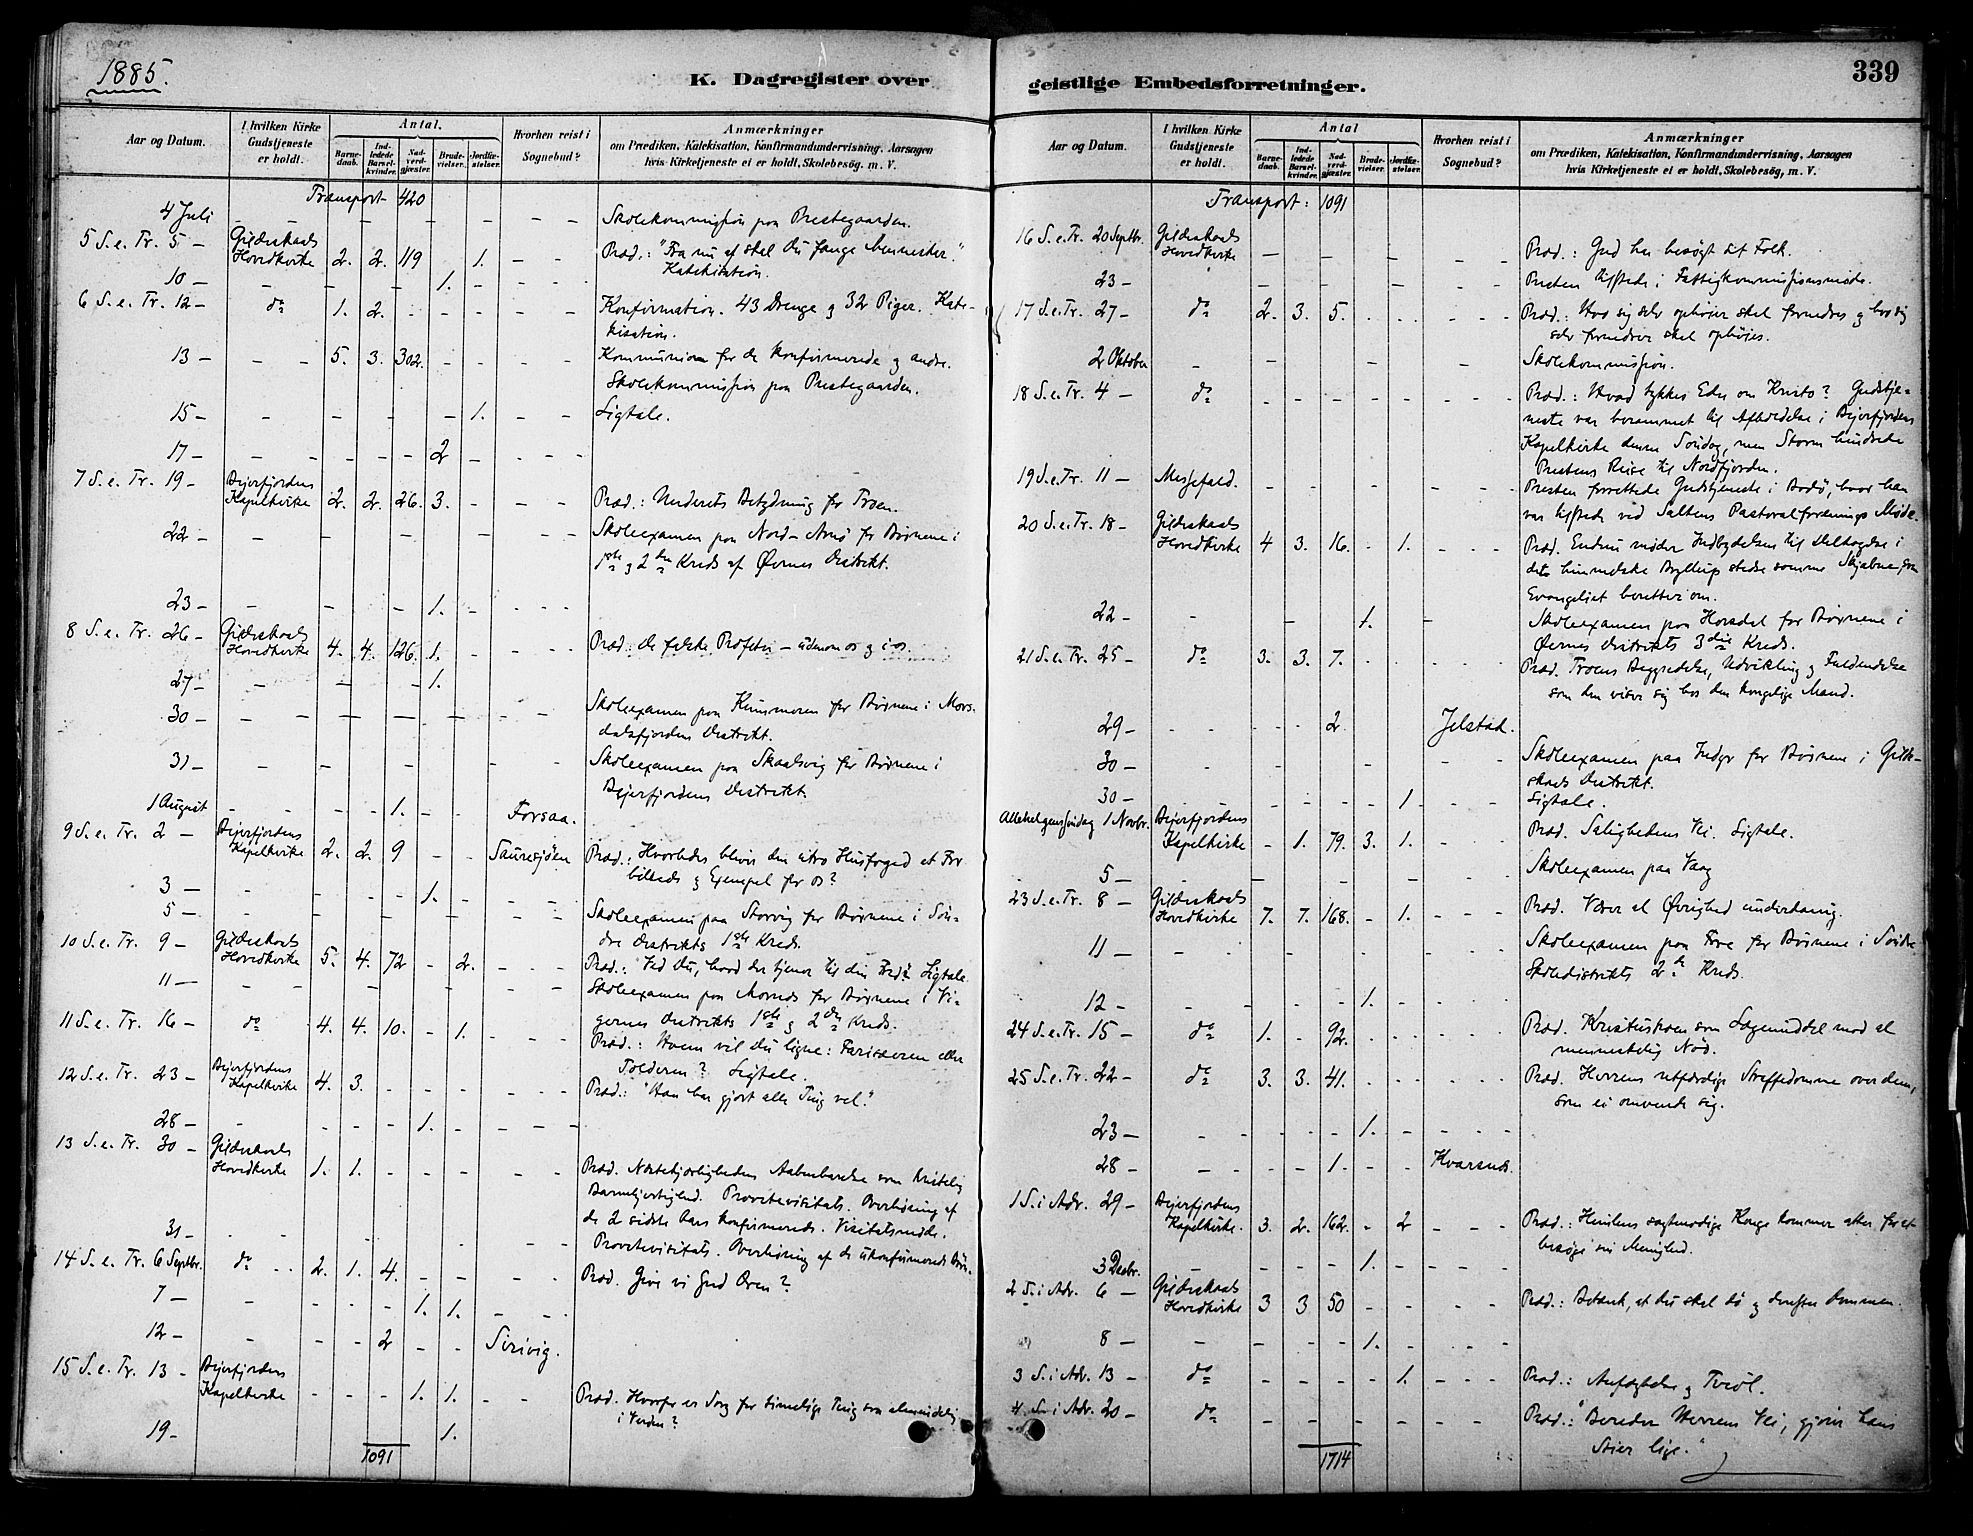 1885.
K. Dagregister over
Aar og Datum.
I hvilken Kirke Gudstjeneste er holdt.
Antal.
Barnedaab.
Indledede Barselkvinder.
Nadverdgjæster.
Brudevielser.
Jordfæstelser.
Hvorhen reist i Sognebud?
Anmærkninger
om Prædiken, Katekisation, Konfirmandundervisning, Aarsagen
hvis Kirketjeneste ei er holdt, Skolebesøg, m. V.
Transport 420
4 Juli - - - - - - - Skolekommission paa Prestegaarden.
5 S. e. Tr. 5 - Gildeskaals Hovedkirke 2. 2. 119 1. - - Præd.: "Fra nu af skal du fange Mennesker."
Katekisation.
10 - - - - - 1. - - -
6 S. e. Tr. 12 - do 1. 2. - - - - - Konfirmation. 43 Drenge og 32 Piger. Kate-
kisation.
13 - - - 5. 3. 302. - - - - Kommunion for de konfirmerede og andre.
Skolekommission paa Prestegaarden.
15 - - - - - - 1. - - Ligtale.
17 - - - - - - 2 - - - -
7 S. e. Tr. 19 - Bejerfjordens Kapelkirke 2. 2. 26. 3. - - - Præd.: Underets Betydning for Troen.
22 - - - - - - - - - Skoleexamen paa Nord-Arnø for Børnene i
1ste og 2den Kreds af Øvernes Distrikt.
23 - - - - 1. - - - -
8 S. e. Tr. 26 - Gildeskaals Hovedkirke 4. 4. 126. 1. - - - - Præd.: De falske Profeter - udenom os og i os.
27 - - - - 1.
30 - - - - - - - - - Skoleexamen paa Kunmoren for Børnene i Mors-
dalsfjordens Distrikt.
31 - - - - - - - Skoleexamen paa Skaalsvig for Børnene i
Bejerfjordens Distrikt.
1 August - - - 1. - - Forsaa.
9 S. e. Tr. 2 - Bejerfjordens Kapelkirke 2. 2. 9 - - Sauresjøen Præd.: Hvorledes bliver den utro Husfoged et For-
billede og Exempel for os?
3 - - - - - 1. - - -
5 - - - - - - - - - Skoleexamen paa Storvig for Børnene i Søn-
dre Distrikts 1ste Kreds.
10 S. e. Tr. 9 - Gildeskaals Hovedkirke 5. 4. 72 - 2. - - - Præd.: "Ved Du, hvad der tjener til din Fred? Ligtale.
11 - - - - - - - - - Skoleexamen paa for Børnene i Vi-
gernes Distrikts 1ste og 2den Kreds.
11 S. e. Tr. 16 - do 4. 4. 10. - 1. - - - Præd.: Hvem vil du ligne: Farisæeren eller
Tolderen? Ligtale.
12 S. e. Tr. 23 - Bejerfjordens Kapelkirke 4. 3. - - - - - - Præd.: "Han har gjort alle Ting vel."
28 - - - - - 1. - - - -
13 S. e. Tr. 30 - Gildeskaals Hovedkirke 1. 1. - - - - - Præd. Næstekjærligheden Aabenbarelse som kristelig
Barmhjertighed. Provstevisitats. Overhøring af
de 2 sidste Aars konfirmerede. Visitatsmøde.
31 - - - - - - - Provstevisitats. Overhøring af de ukonfirmerede Børn.
14 S. e. Tr. 6 Septbr. do - - 2. 1. 4. - - - - Præd. Give vi Gud Æren?
7 - - - - - 1. 1. - - -
12 - - - - 2 - - Sørivig.
15 S. e. Tr. 13 - Bejerfjordens Kapelkirke - - - 1. 1. - - Præd. Hvorfor er Sorg for timelige Ting saa almindelig
i Verden?
19 - 1.
1091
geistlige Embedsforretninger.
339
Aar og Datum.
I hvilken Kirke Gudstjeneste er holdt.
Antal
Barnedaab.
Indledede Barselkvinder.
Nadverdgjæster.
Brudevielser.
Jordfæstelser.
Hvorhen reist i Sognebud?
Anmærkninger
om Prædiken, Katekisation, Konfirmandundervisning, Aarsagen
hvis Kirketjeneste ei er holdt, Skolebesøg, m. V.
Transport: 1091
16 S. e. Tr. 20 Septbr. Gildeskaals Hovedkirke - - - - - Præd.: Gud har besøgt sit Folk.
23 - - - - - - - Presten tilstede i Fattigkommissionsmøde.
17 S. e. Tr. 27 - do 2. 3. 5. - - - - - Præd.: Hvo sig selv ophøier skal fornedres og hvo sig
selv fornedrer skal ophøies.
2 Oktober - - - - Skolekommission.
18 S. e. Tr. 4 - do - - - - - - - - Præd.: Hvad tykkes Eder om Kristo? Gudstje-
neste var berammet til Afholdelse i Bejerfjordens
Kapelkirke denne Søndag, men Storm hindrede
Prestens Reise til Nordfjorden.
19 S. e. Tr. 11 - Messefald. - - - - Presten forrettede Gudstjeneste i Bodø, hvor han
var tilstede ved Saltens Pastoralforenings Møde.
20 S. e. Tr. 18 - Gildeskaals Hovedkirke 4 3. 16. - 1. - - - Præd. Endnu møder Indbydelsen til Deltagelse i
det himmelske Bryllup stedse samme Skjæbne, som
Evangeliet beretter om.
22 - - - - 1. - Skoleexamen paa Horsdal for Børnene i
Øvernes Distrikts 3die Kreds.
21 S. e. Tr. 25 - do 3. 3. 7. - - - - - Præd. Troens Begyndelse, Udvikling og Fuldendelse
som den viser sig hos den kongelige Mand.
29 - - - - - 2 Jelstad.
30 - - - - - - - Skoleexamen paa Inder for Børnene i Gilde-
skaals Distrikt.
30 - - - - - 1 - - Ligtale.
Allehelgenssøndag 1 Novbr. Bejerfjordens Kapelkirke - 1. 79. 3. 1. - - - Præd. Salighedens Vei. Ligtale.
5 - - - - - - Skoleexamen paa Vaag
23 S. e. Tr. 8 - Gildeskaals Hovedkirke 7. 7. 168. - 1. - - - Præd. Værer al Øvrighed underdanig.
11 - - - - - - - - - Skoleexamen paa Fore for Børnene i Søndre
Skoledistrikts 2den Kreds.
12 - - - - - 1. - - -
24 S. e. Tr. 15 - do 1. - 92. - - - - - Præd. Kristustroen som Lægemiddel mod al
menneskelig Nød.
25 S. e. Tr. 22 - do 3. 3. 41. - - - - - Præd. Herrens retfærdige Straffedomme over dem,
som ei omvende sig.
23 - - - - - 1. - - - -
28 - - - - 1. - - Kvarsnes.
1 S. i Adv. 29 - Bejerfjordens Kapelkirke. 3. 2. 162. - 2 - - - Præd.: Himlens sagtmodige Konge kommer atter for at
besøge sin Menighed.
3 Decbr. - - - - 1. - - - -
2 S. i Adv. 6 - Gildeskaals Hovedkirke 3 3 50 - - - - Præd.: Betænk, at du skal dø og derefter Dommen.
8 - - - - - 1. - - -
3 S. i Adv. 13 - do - - - - 1. - - - Præd.: Anfægtelse og Tvivl.
4. S. i Adv. 20 - do - - - - - - - - Præd.: "Bereder Herrens Vei, gjører hans
Stier lige."
1714